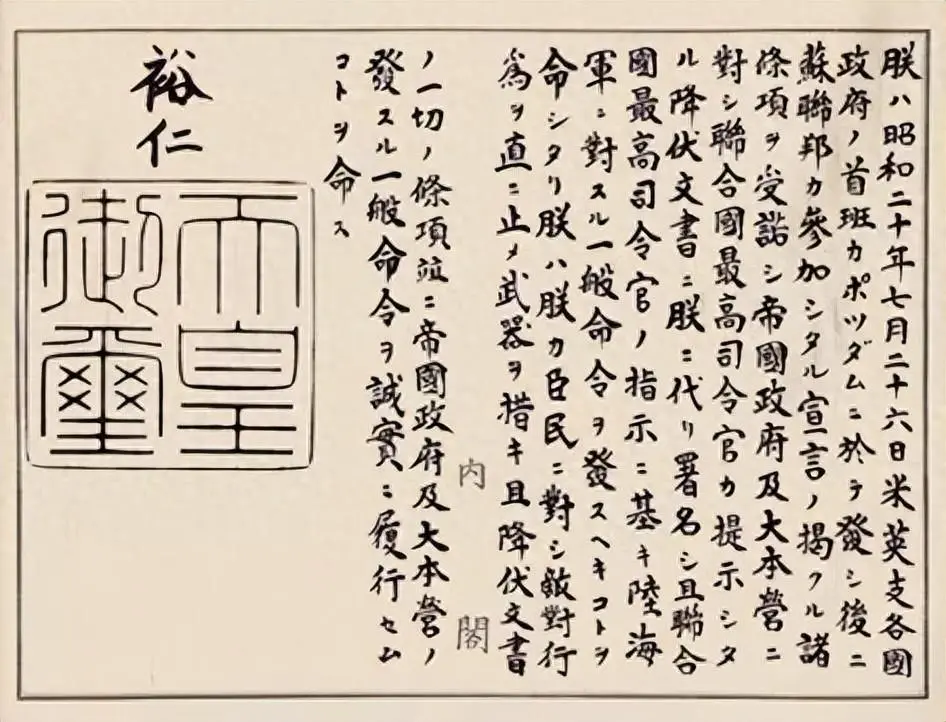 朕ハ昭和二十年七月二十六日米英支各國
政府ノ首班カポツダムニ於テ發シ後ニ
蘇聯邦カ參加シタル宣言ノ掲クル諸
條項ヲ受諾シ帝國政府及大本營ニ
對シ聯合國最高司令官カ提示シタ
ル降伏文書ニ朕ニ代リ署名シ且聯合
國最高司令官ノ指示ニ基キ陸海
軍ニ對スル一般命令ヲ發スヘキコトヲ
命シタリ朕ハ朕カ臣民ニ對シ敵對行
爲ヲ直ニ止メ武器ヲ措キ且降伏文書
内閣
ノ一切ノ條項竝ニ帝國政府及大本營ノ
發スル一般命令ヲ誠實ニ履行セム
コトヲ命ス
裕仁
天皇
御璽